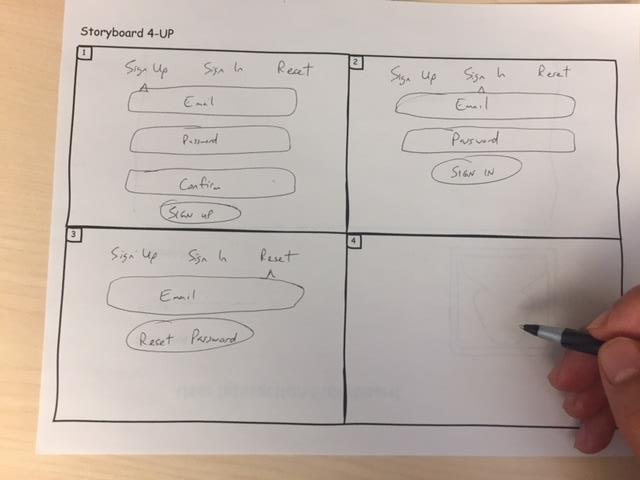 Storyboard 4-UP
1
Sign Up Sign In Reset
Email
Password
Confirm
SIGN UP
2
Sign Up Sign In Reset
Email
Password
SIGN IN
3
Sign Up Sign In Reset
Email
Reset Password
4